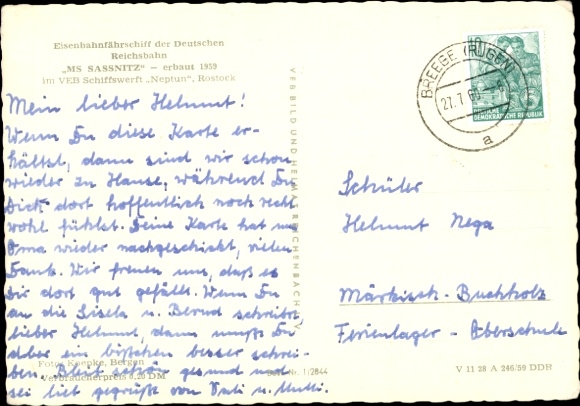 Eisenbahnfährschiff der Deutschen
Reichsbahn
„MS SASSNITZ" – erbaut 1959
im VEB Schiffswerft „Neptun", Rostock
Mein lieber Helmut!
Wenn Du diese Karte er-
hältst, dann sind wir schon
wieder zu Hause, während Du
Dich dort hoffentlich noch recht
wohl fühlst. Deine Karte hat uns
Oma wieder nachgeschickt, vielen
Dank. Wir freuen uns, daß es
Dir dort gut gefällt. Wenn Du
an die Gisela u. Bernd schreibst,
lieber Helmut, dann mußt Du
aber ein bißchen besser schrei-
ben. Bleib schön gesund und
sei lieb gegrüßt von Vati u. Mutti.
Foto: Knepke, Bergen
Verbraucherpreis 0,20 DM
VEB BILD UND HEIMAT REICHENBACH
Nr. 1/2844
10
DEUTSCHE
DEMOKRATISCHE REPUBLIK
BREEGE (RÜGEN)
27.7.60
a
Schüler
Helmut Nega
Märkisch-Buchholz
Ferienlager - Oberschule
V 11 28 A 246/59 DDR